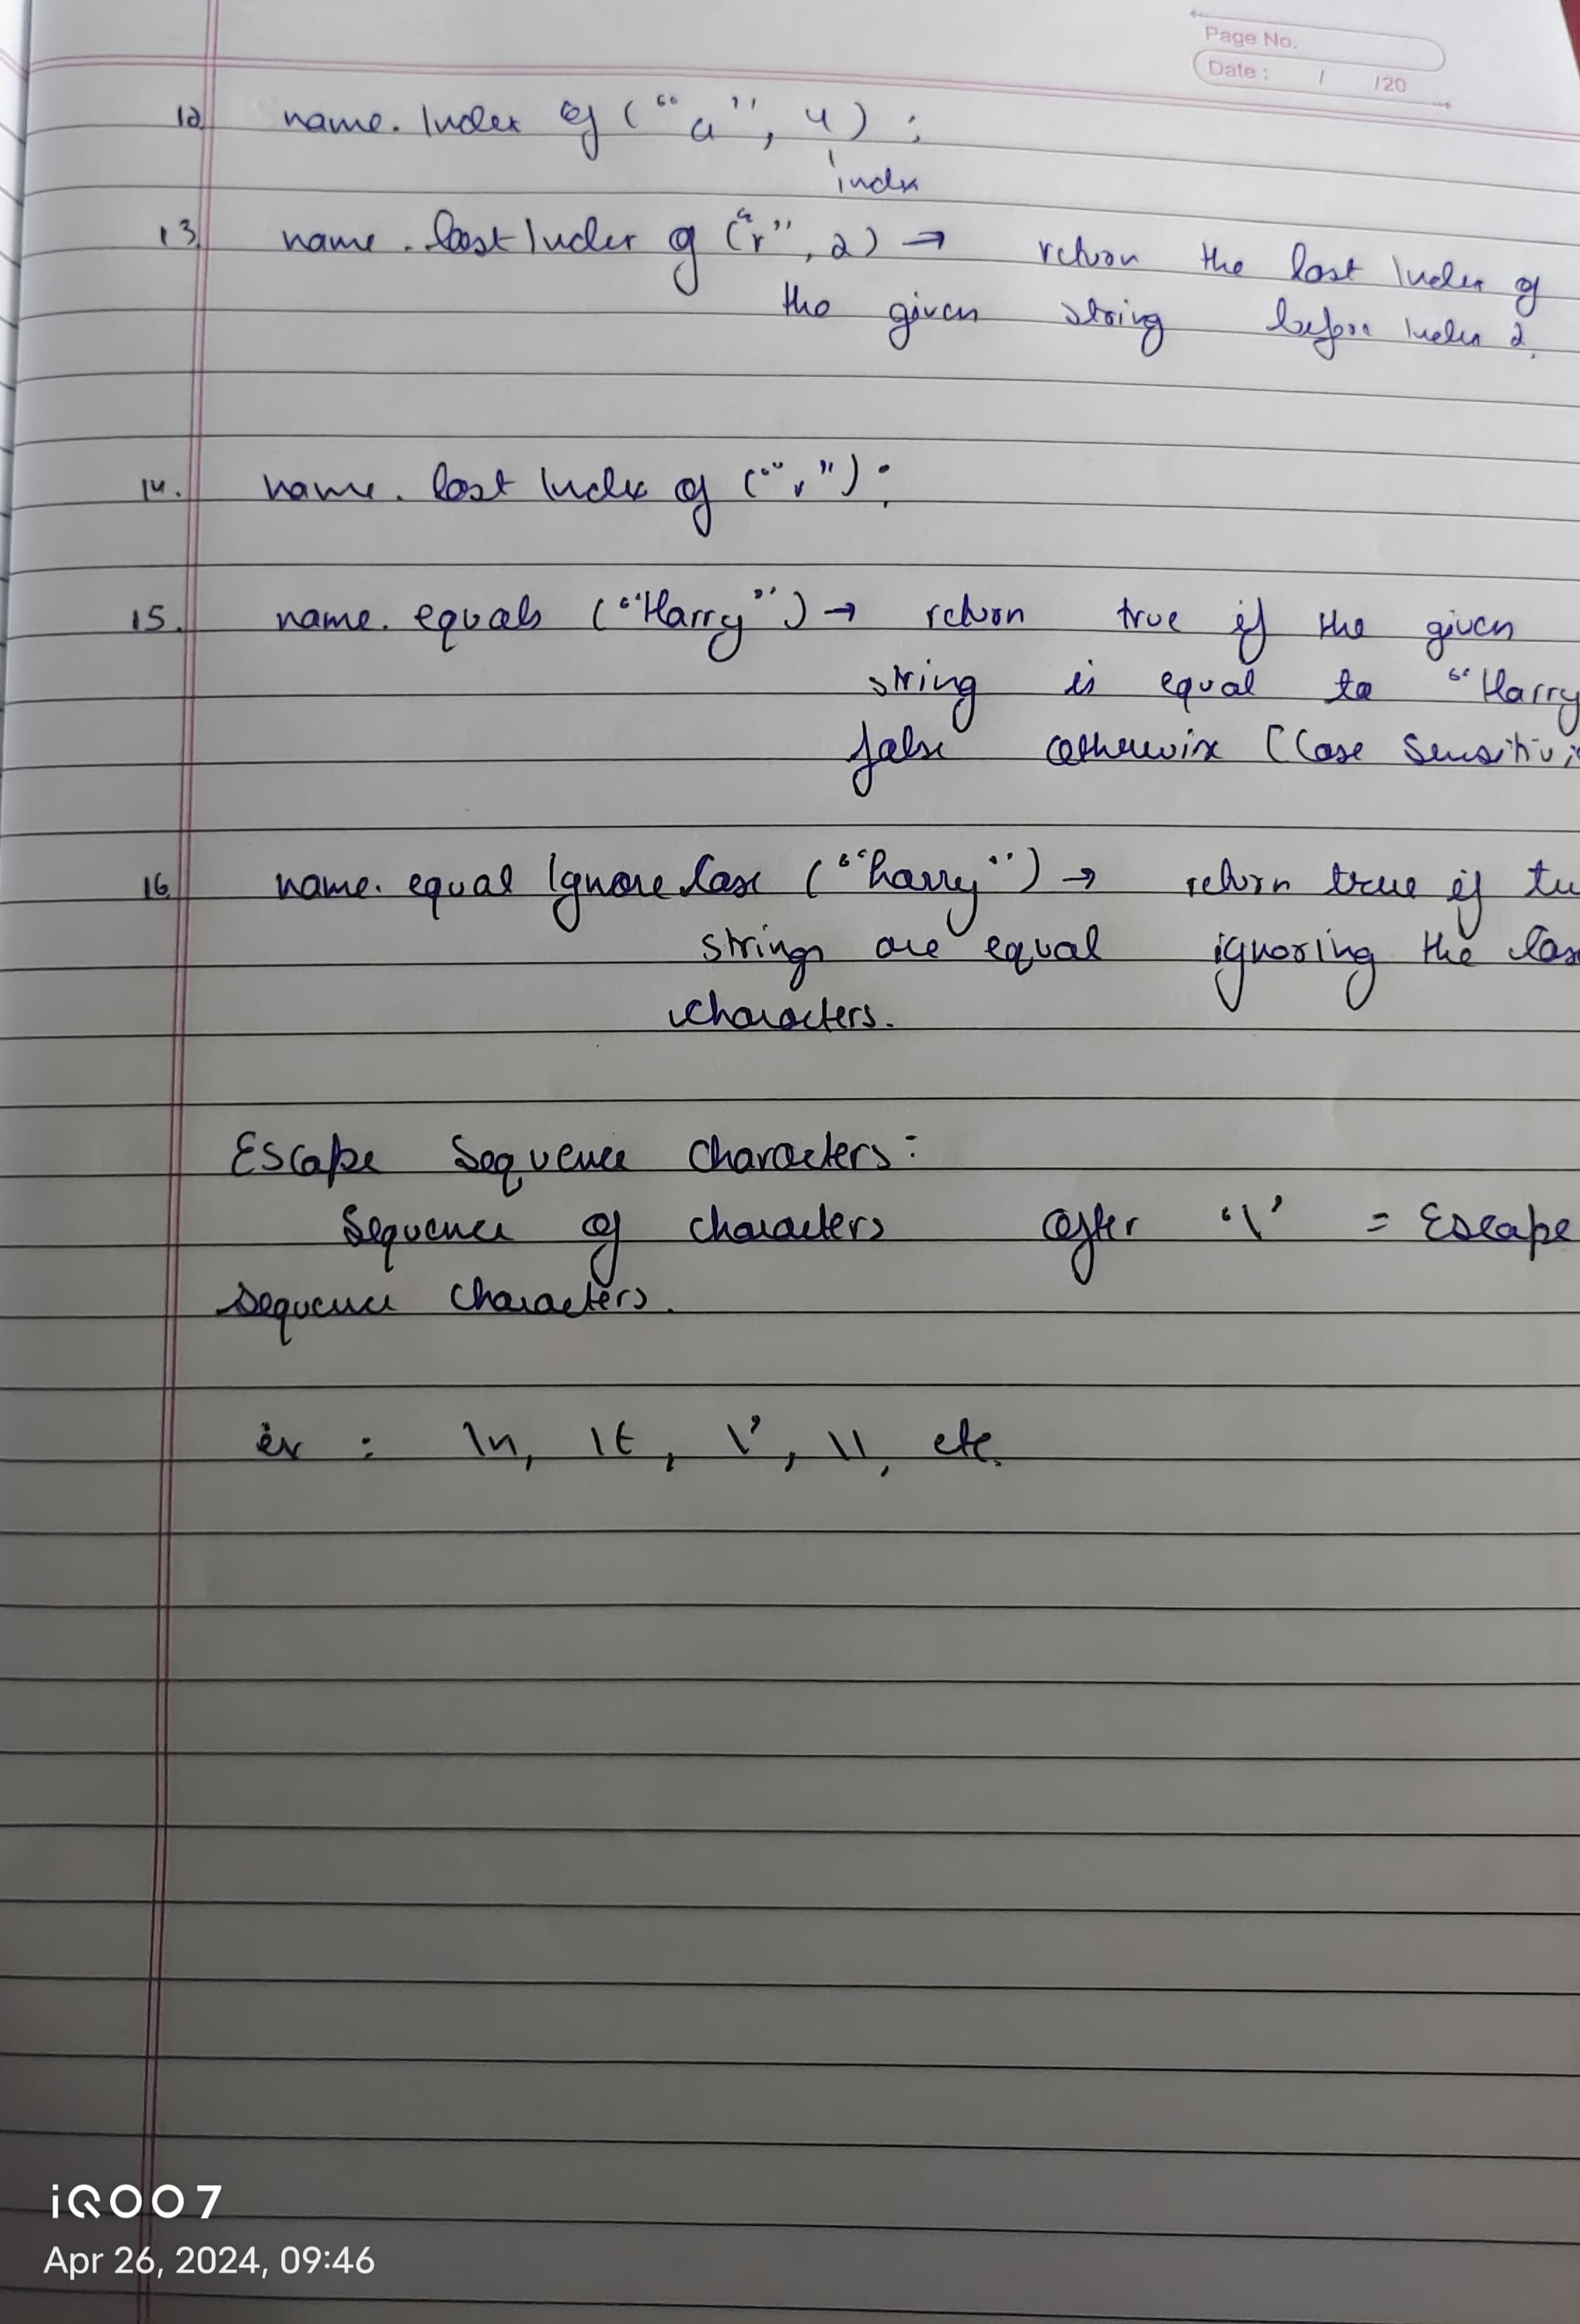 Page No.
Date : / /20
12. name. Index of ("a", 4) ;
index
13. name. last Index of ("r", 2) → return the last Index of
the given string before Index 2.
14. name. last Index of ("r") ;
15. name. equals ("Harry") → return true if the given
string is equal to "Harry
false otherwise [Case Sensitivi
16. name. equal Ignore Case ("harry") → return true if tw
strings are equal ignoring the cas
characters.
Escape Sequence Characters:
Sequence of characters after '\' = Escape
sequence characters.
ex : \n, \t, \', \\, etc.
iQOO 7
Apr 26, 2024, 09:46